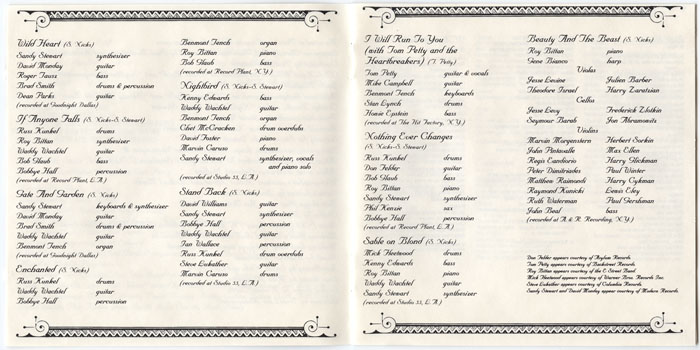 Wild Heart (S. Nicks)
Sandy Stewart synthesizer
David Monday guitar
Roger Tausz bass
Brad Smith drums & percussion
Dean Parks guitar
(recorded at Goodnight Dallas)
If Anyone Falls (S. Nicks-S. Stewart)
Russ Kunkel drums
Roy Bittan synthesizer
Waddy Wachtel guitar
Bob Glaub bass
Bobbye Hall percussion
(recorded at Record Plant, L.A.)
Gate And Garden (S. Nicks)
Sandy Stewart keyboards & synthesizer
David Monday guitar
Brad Smith drums & percussion
Waddy Wachtel guitar
Benmont Tench organ
(recorded at Goodnight Dallas)
Enchanted (S. Nicks)
Russ Kunkel drums
Waddy Wachtel guitar
Bobbye Hall percussion
Benmont Tench organ
Roy Bittan piano
Bob Glaub bass
(recorded at Record Plant, N.Y.)
Nightbird (S. Nicks-S. Stewart)
Kenny Edwards bass
Waddy Wachtel guitar
Benmont Tench organ
Chet McCracken drum overdubs
David Foster piano
Marvin Caruso drums
Sandy Stewart synthesizer, vocals
and piano solo
(recorded at Studio 55, L.A.)
Stand Back (S. Nicks)
David Williams guitar
Sandy Stewart synthesizer
Bobbye Hall percussion
Waddy Wachtel guitar
Ian Wallace percussion
Russ Kunkel drum overdubs
Steve Lukather guitar
Marvin Caruso drums
(recorded at Studio 55, L.A.)
I Will Run To You
(with Tom Petty and the
Heartbreakers) (T. Petty)
Tom Petty guitar & vocals
Mike Campbell guitar
Benmont Tench keyboards
Stan Lynch drums
Howie Epstein bass
(recorded at The Hit Factory, N.Y.)
Nothing Ever Changes
(S. Nicks-S. Stewart)
Russ Kunkel drums
Don Felder guitar
Bob Glaub bass
Roy Bittan piano
Sandy Stewart synthesizer
Phil Kenzie sax
Bobbye Hall percussion
(recorded at Record Plant, L.A.)
Sable on Blond (S. Nicks)
Mick Fleetwood drums
Kenny Edwards bass
Roy Bittan piano
Waddy Wachtel guitar
Sandy Stewart synthesizer
(recorded at Studio 55, L.A.)
Beauty And The Beast (S. Nicks)
Roy Bittan piano
Gene Bianco harp
Violas
Jesse Levine Julien Barber
Theodore Israel Harry Zaratzian
Cellos
Jesse Levy Frederick Zlotkin
Seymour Barab Jon Abramowitz
Violins
Marvin Morgenstern Herbert Sorkin
John Pintavalle Max Ellen
Regis Eandiorio Harry Glickman
Peter Dimitriades Paul Winter
Matthew Raimondi Harry Cykman
Raymond Kunicki Lewis Eley
Ruth Waterman Paul Gershman
John Beal bass
(recorded at A & R. Recording, N.Y.)
Don Felder appears courtesy of Asylum Records
Tom Petty appears courtesy of Backstreet Records
Roy Bittan appears courtesy of the E Street Band
Mick Fleetwood appears courtesy of Warner Bros. Records Inc.
Steve Lukather appears courtesy of Columbia Records
Sandy Stewart and David Monday appear courtesy of Modern Records